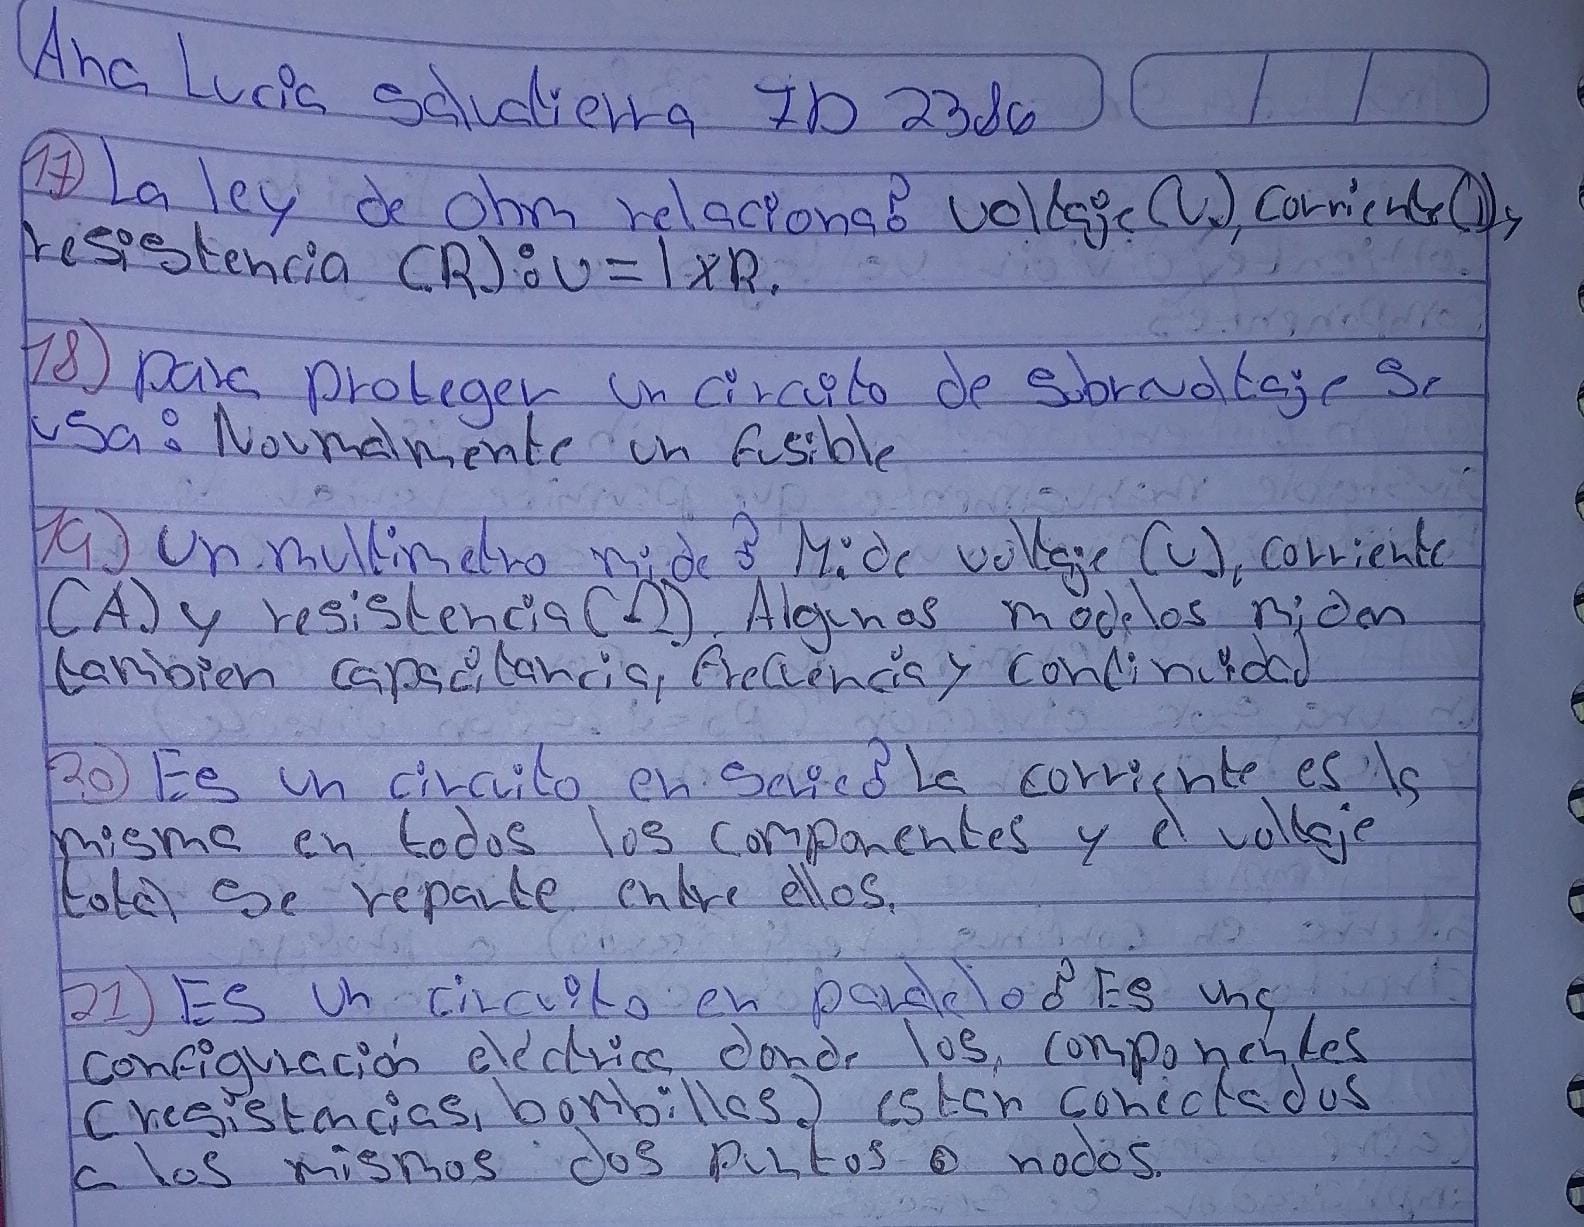 Ana Lucia Saludierra ID 2386
17) La ley de ohm relaciona: voltaje (V), corriente (I), y
resistencia (R): V = I x R.
18) para proteger un circuito de sobravoltaje se
usa: Normalmente un fusible
19) Un multimetro mide: Mide voltaje (V), corriente
(A) y resistencia (Ω). Algunos modelos miden
tambien capacitancia, frecuencia y continuidad
20) Es un circuito en serie: La corriente es la
misma en todos los componentes y el voltaje
total se reparte entre ellos.
21) Es un circuito en paralelo: Es una
configuración eléctrica donde los, componentes
(resistencias, bombillas) estan conectados
a los mismos dos puntos o nodos.